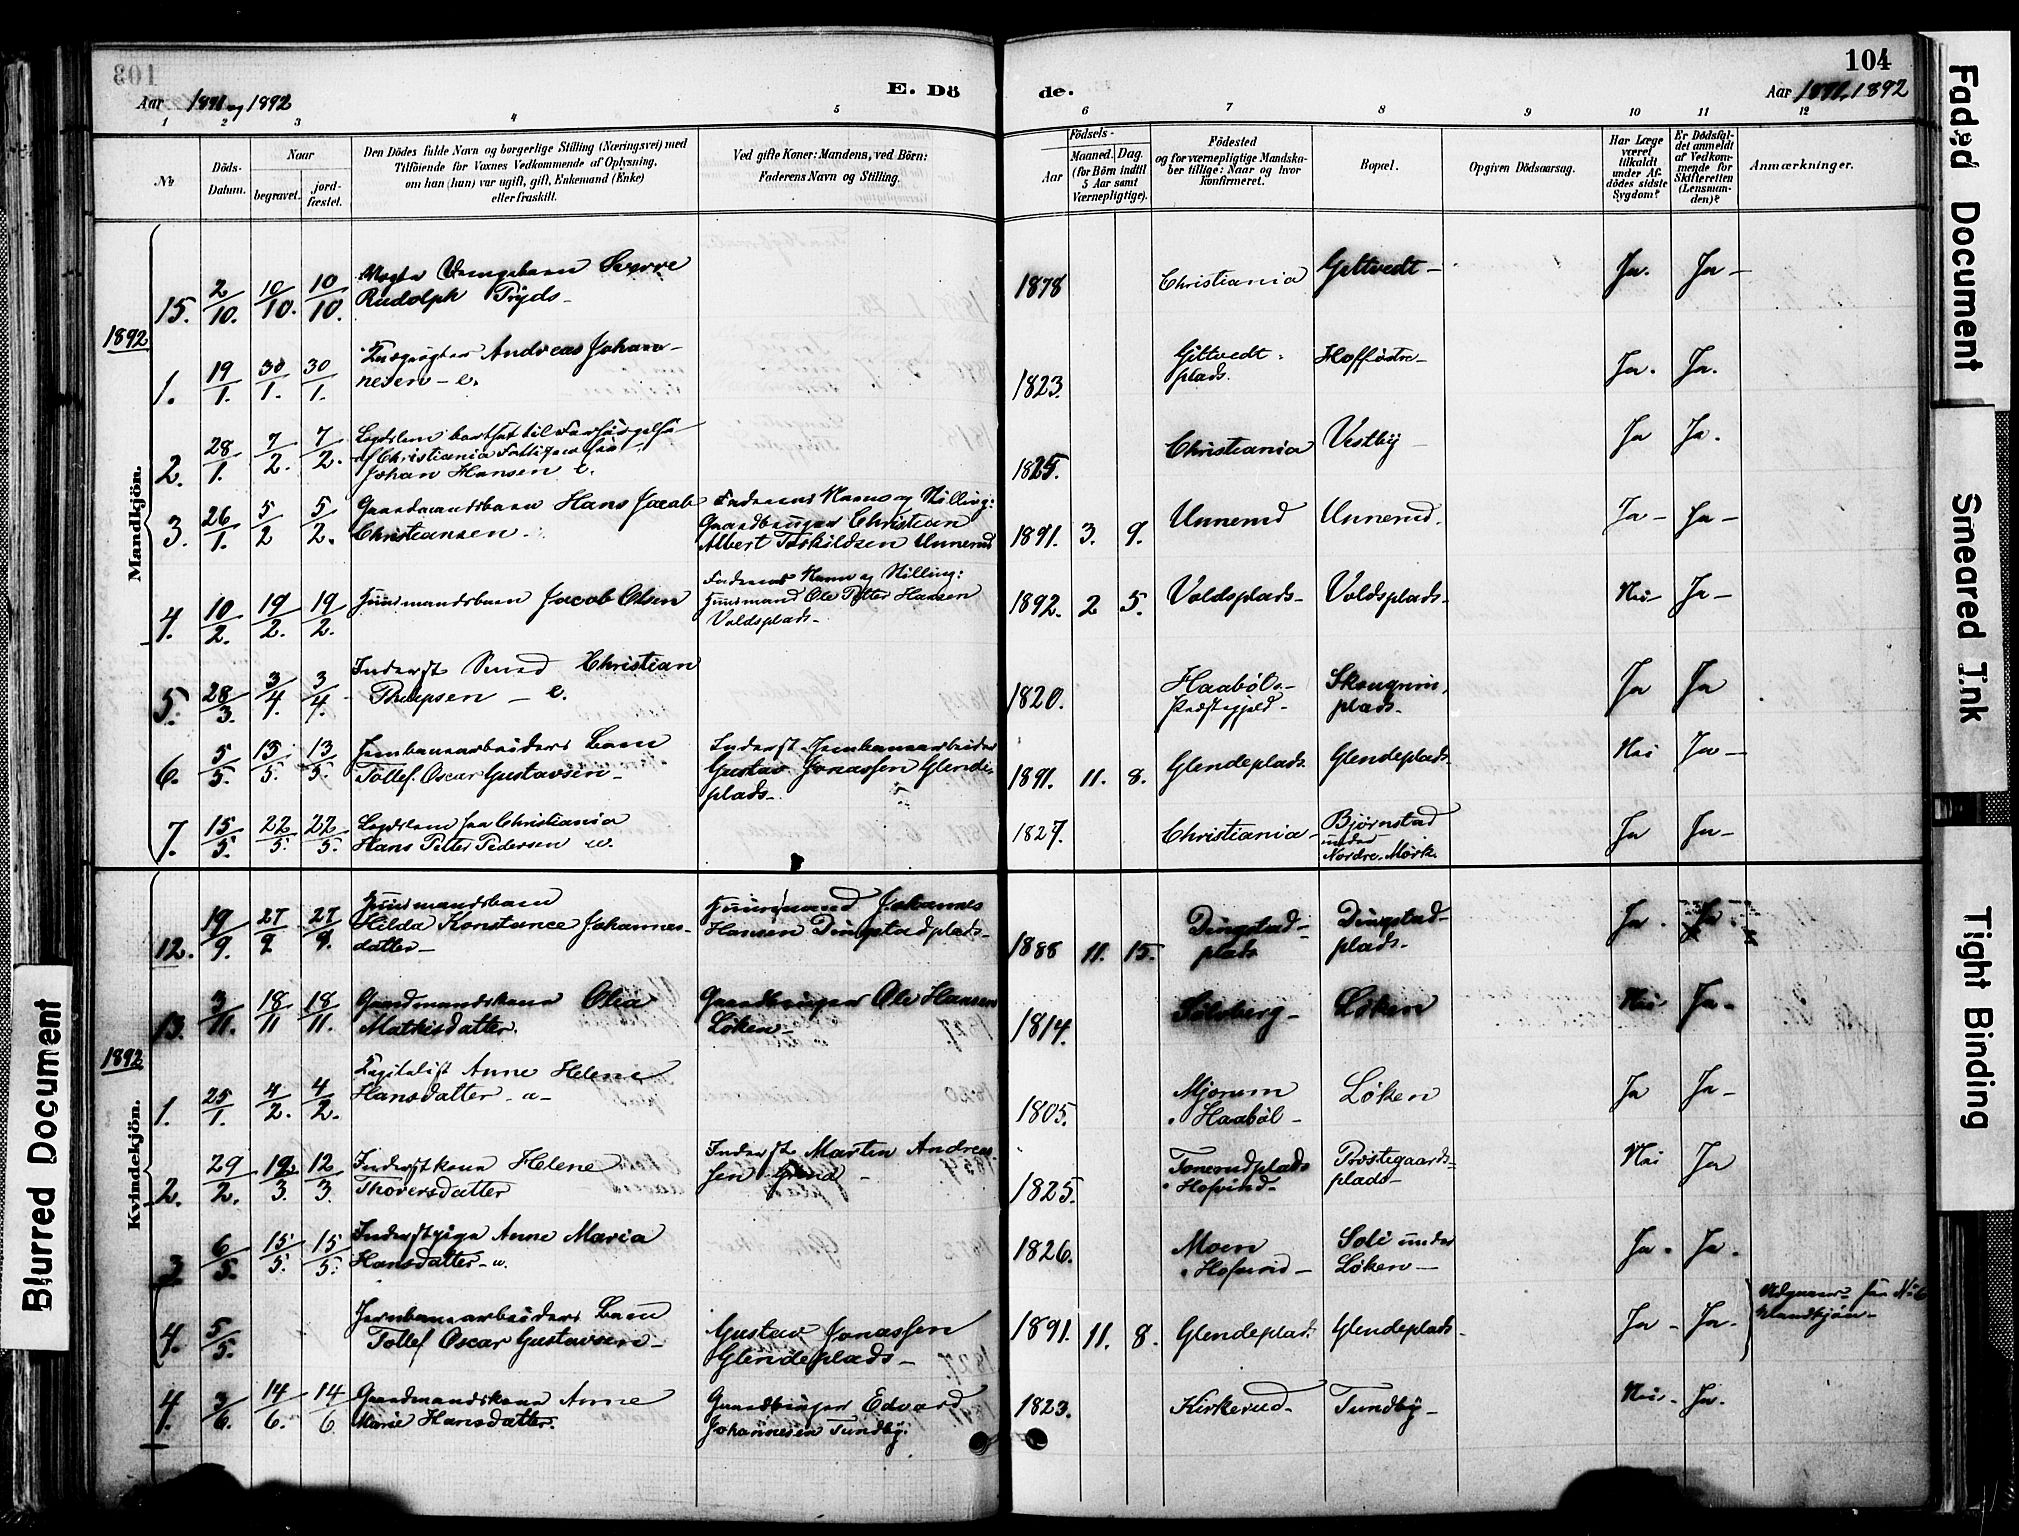 104
Aar 1891 og 1892
E. Dö
de.
Aar 1891, 1892
1 2 3 4 5 6 7 8 9 10 11 12
No
Döds-
Datum.
Naar
begravet.
jord-
fæstet.
Den Dödes fulde Navn og borgerlige Stilling (Næringsvei) med
Tilföiende for Voxnes Vedkommende af Oplysning,
om han (hun) var ugift, gift, Enkemand (Enke)
eller fraskilt.
Ved gifte Koner: Mandens, ved Börn:
Faderens Navn og Stilling.
Födsels-
Aar
Maaned. Dag.
(for Börn indtil
5 Aar samt
Værnepligtige).
Födested
og for værnepligtige Mandska-
ber tillige: Naar og hvor
Konfirmeret.
Bopæl.
Opgiven Dödsaarsag.
Har Læge
været
tilkaldt
under Af-
dödes sidste
Sygdom?
Er Dödsfal-
det anmeldt
af Vedkom-
mende for
Skifteretten
(Lensman-
den)?
Anmærkninger.
Mandkjön.
15. 2/10. 10/10. 10/10. Sverre
Rudolph Pryds- 1878 Christiania Gittvedt- Ja. Ja-
1892
1. 19/1. 30/1. 30/1. Andreas Johan-
nesen - e. 1823. Gittvedt-
plads. Ja. Ja.
2. 28/1. 7/2. 7/2. Lægdslem bortsat til Forsørgelse
af Christiania Fattigvæsen
Johan Hansen e. 1825. Christiania Vestby Ja Ja.
3. 26/1. 5/2 5/2. Gaardmandsbarn Hans Jacob
Christiansen. Faderens Navn og Stilling:
Gaardbruger Christian
Albert Torkildsen Unnerud 1891. 3. 9. Unnerud Unnerud. Ja- Ja-
4. 10/2. 19/2. 19/2. Huusmandsbarn Jacob Olsen Faderens Navn og Stilling:
Huusmand Ole Petter Hansen
Voldsplads- 1892. 2 5. Voldsplads- Voldsplads- Nei- Ja-
5. 28/3. 3/4. 3/4. Inderst Smed Christian
- e. 1820. Haabøls-
Præstegjæld-
plads- Ja Ja
6. 5/5. 13/5. 13/5. Jernbanearbeiders Barn
Tollef Oscar Gustavsen- Inderst Jernbanearbeider
Gustav Jonassen Glende-
plads- 1891. 11. 8. Glendeplads Glendeplads. Nei Ja-
7. 15/5. 22/5. 22/5. Lægdslem fra Christiania
Hans Petter Pedersen 1827. Christiania- Bjørnstad
under
Nordre Mørk. Ja Ja-
Kvindekjön.
12. 19/9. 27/9 27/9. Huusmandsbarn
Hilda Konstance Johannes-
datter- Huusmand Johannes
Hansen Dingstadplads- 1888 11. 15. Dingstad-
plads Dingstad-
plads. Ja. Ja.
13. 3/11. 18/11 18/11. Gaardmandskone Olea
Mathisdatter. Gaardbruger Ole Hansen
Løken- 1814. Sølvberg- Løken Nei Ja.
1892
1. 25/1. 4/2. 4/2. Anne Helene
Hansdatter 1805. Mjorum
i Haabøl- Løken Ja Ja-
2. 29/2. 12/3. 12/3. Inderstkone Helene
Thoversdatter Inderst Martin Andreas-
sen 1825. Tonerudplads
i Hofvind- plads- Nei Ja
3. 6/5. 15/5. 15/5. Inderstpige Anne Maria
Hansdatter - u. 1826. Moen
i Hofvind- Soli under
Løken- Ja. Ja.
4. 5/5. Jernbanearbeiders Barn
Tollef Oscar Gustavsen- Gustav Jonassen
Glendeplads- 1891. 11. 8. Glendeplads Glendeplads- Ja- Ja. Udgaaer- No 6
Mandkjön-
4. 3/6. 14/6. 14/6 Gaardmandskone Anne
Marie Hansdatter. Gaardbruger Edvard
Johannesen Tundby. 1823. Kirkerud- Tundby- Nei- Ja.
Faded Document
Smeared Ink
Tight Binding
Blurred Document